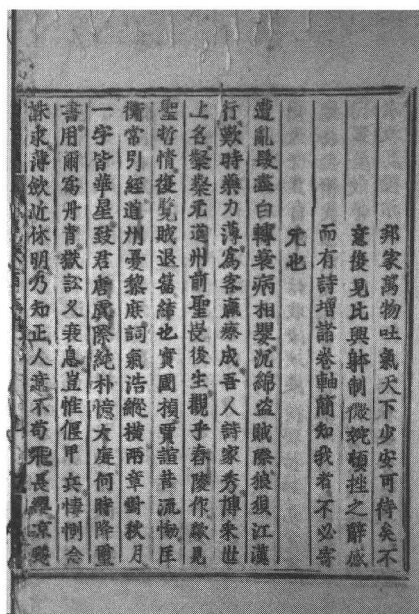 邦家萬物吐氣天下少安可待矣不
意復見比興體制微婉頓挫之辭感
而有詩增諸卷軸簡知我者不必寄
元也
遭亂髮盡白轉衰病相嬰沉綿盜賊際狼狽江漢
行歎時藥力薄為客羸瘵成吾人詩家秀博采世
上名粲粲元道州前聖畏後生觀乎舂陵作歘見
俊哲情復覽賊退篇結也實國楨賈誼昔流慟匡
衡常引經道州憂黎庶詞氣浩縱橫兩章對秋月
一字皆華星致君唐虞際純朴憶大庭何時降璽
書用爾為丹青獄訟久衰息豈惟偃甲兵悽惻念
誅求薄斂近休明乃知正人意不苟飛長纓涼飈